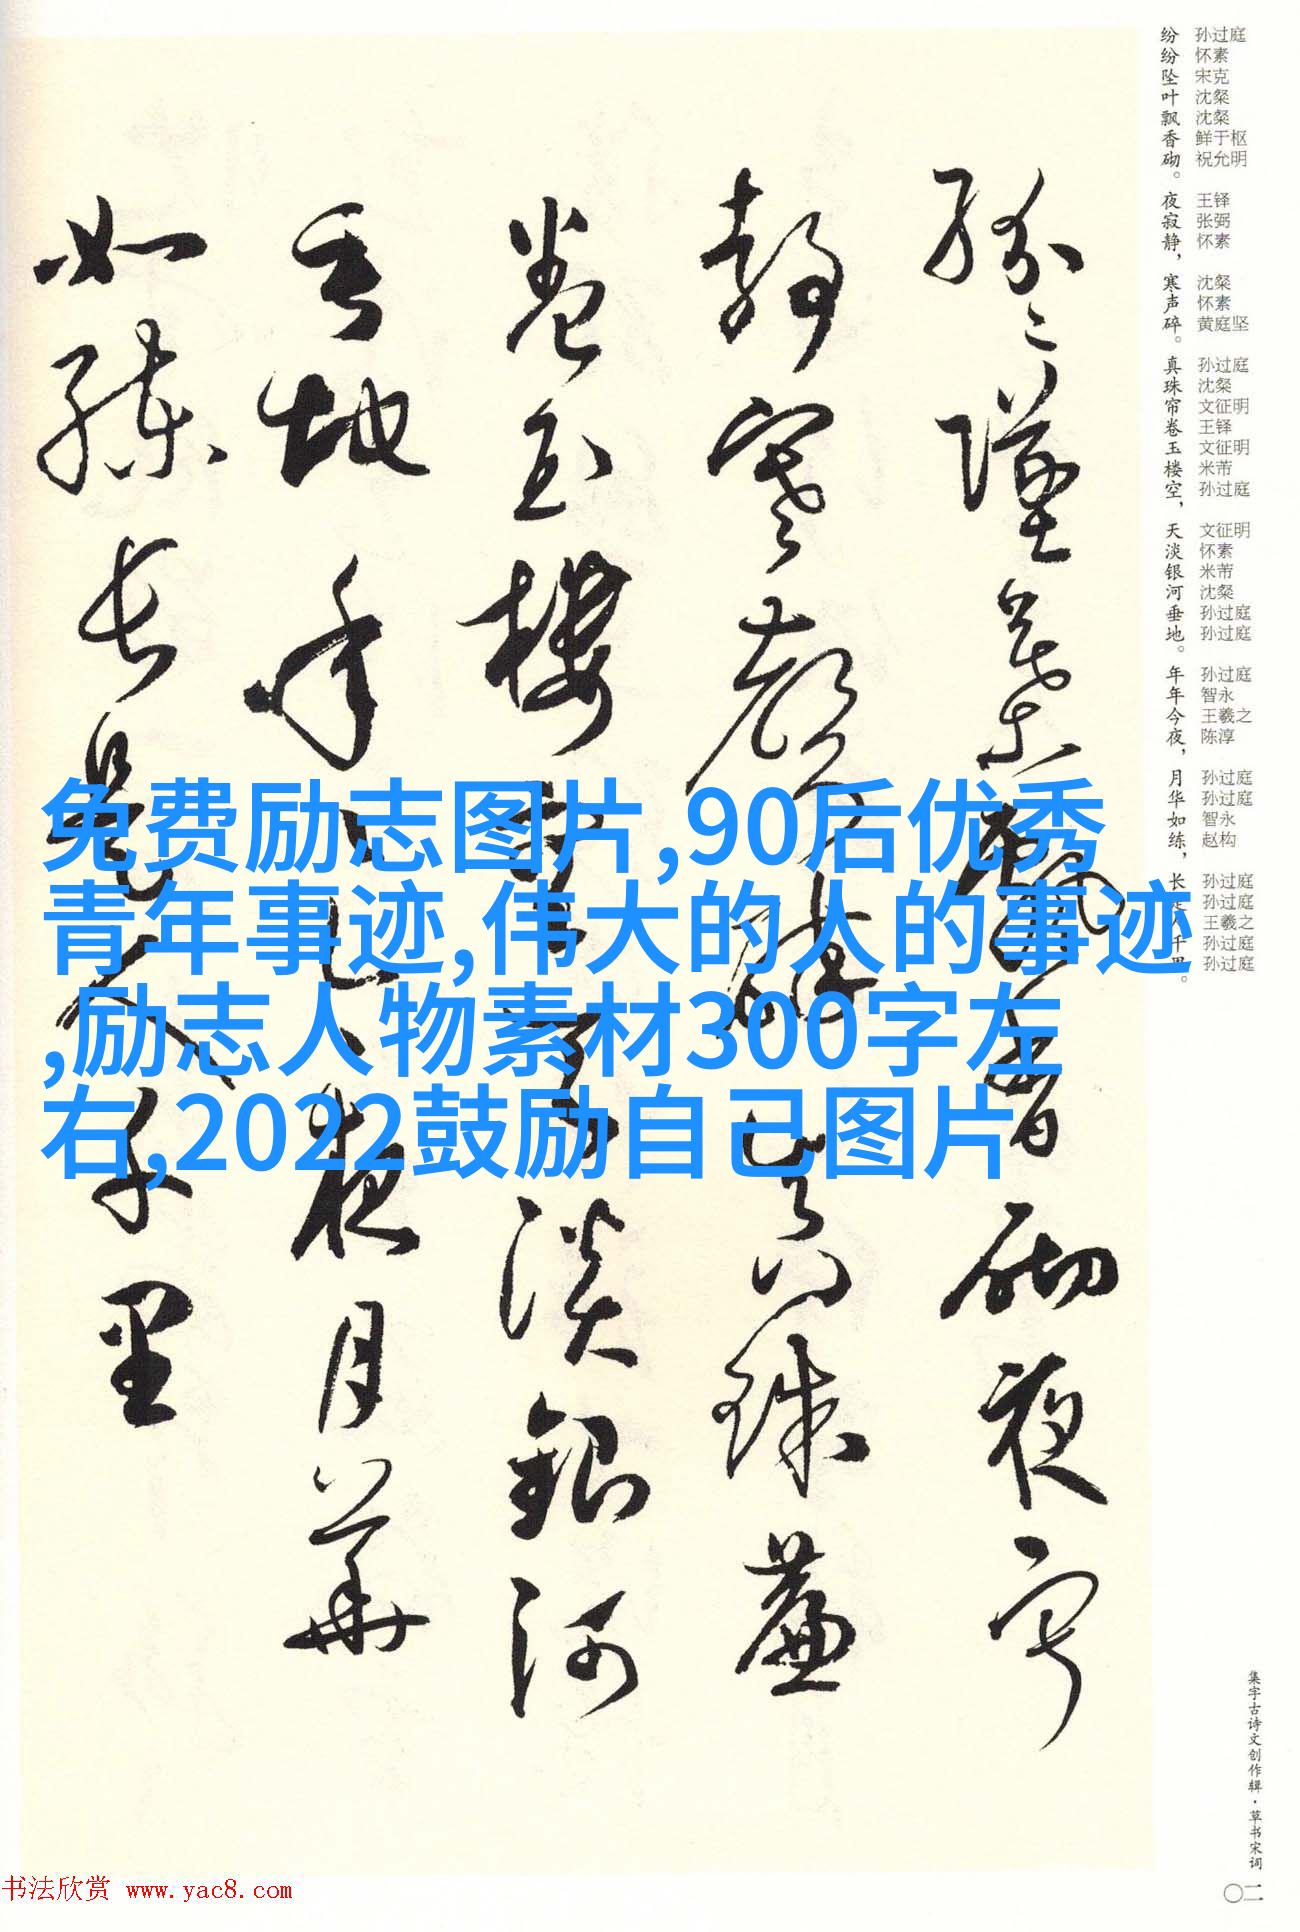 紛々墜葉飄香砌夜寂
静寒聲碎真珠簾
卷玉樓空天淡銀河
垂地年々今夜月華
如練長是人千里
纷 孙过庭
纷 怀素
坠 宋克
叶 沈粲
飘 沈粲
香 鲜于枢
砌。 祝允明
夜 王铎
寂 张弼
静， 怀素
寒 沈粲
声 怀素
碎。 黄庭坚
真 孙过庭
珠 沈粲
帘 文征明
卷 王铎
玉 文征明
楼 米芾
空， 孙过庭
天 文征明
淡 怀素
银 米芾
河 沈粲
垂 孙过庭
地。 孙过庭
年 孙过庭
年 智永
今 王羲之
夜， 陈淳
月 孙过庭
华 孙过庭
如 智永
练， 赵构
长 孙过庭
是 孙过庭
人 王羲之
千 孙过庭
里。 孙过庭
免费励志图片,90后优秀
青年事迹,伟大的人的事迹
,励志人物素材300字左
右,2022鼓励自己图片
集字古诗文创作辑·草书宋词
〇二
书法欣赏 www.yac8.com